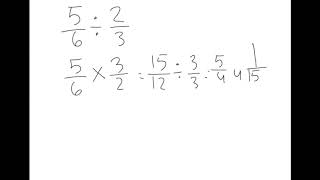 5/6 ÷ 2/3
5/6 × 3/2 = 15/12 ÷ 3/3 : 5/4 4 1/15